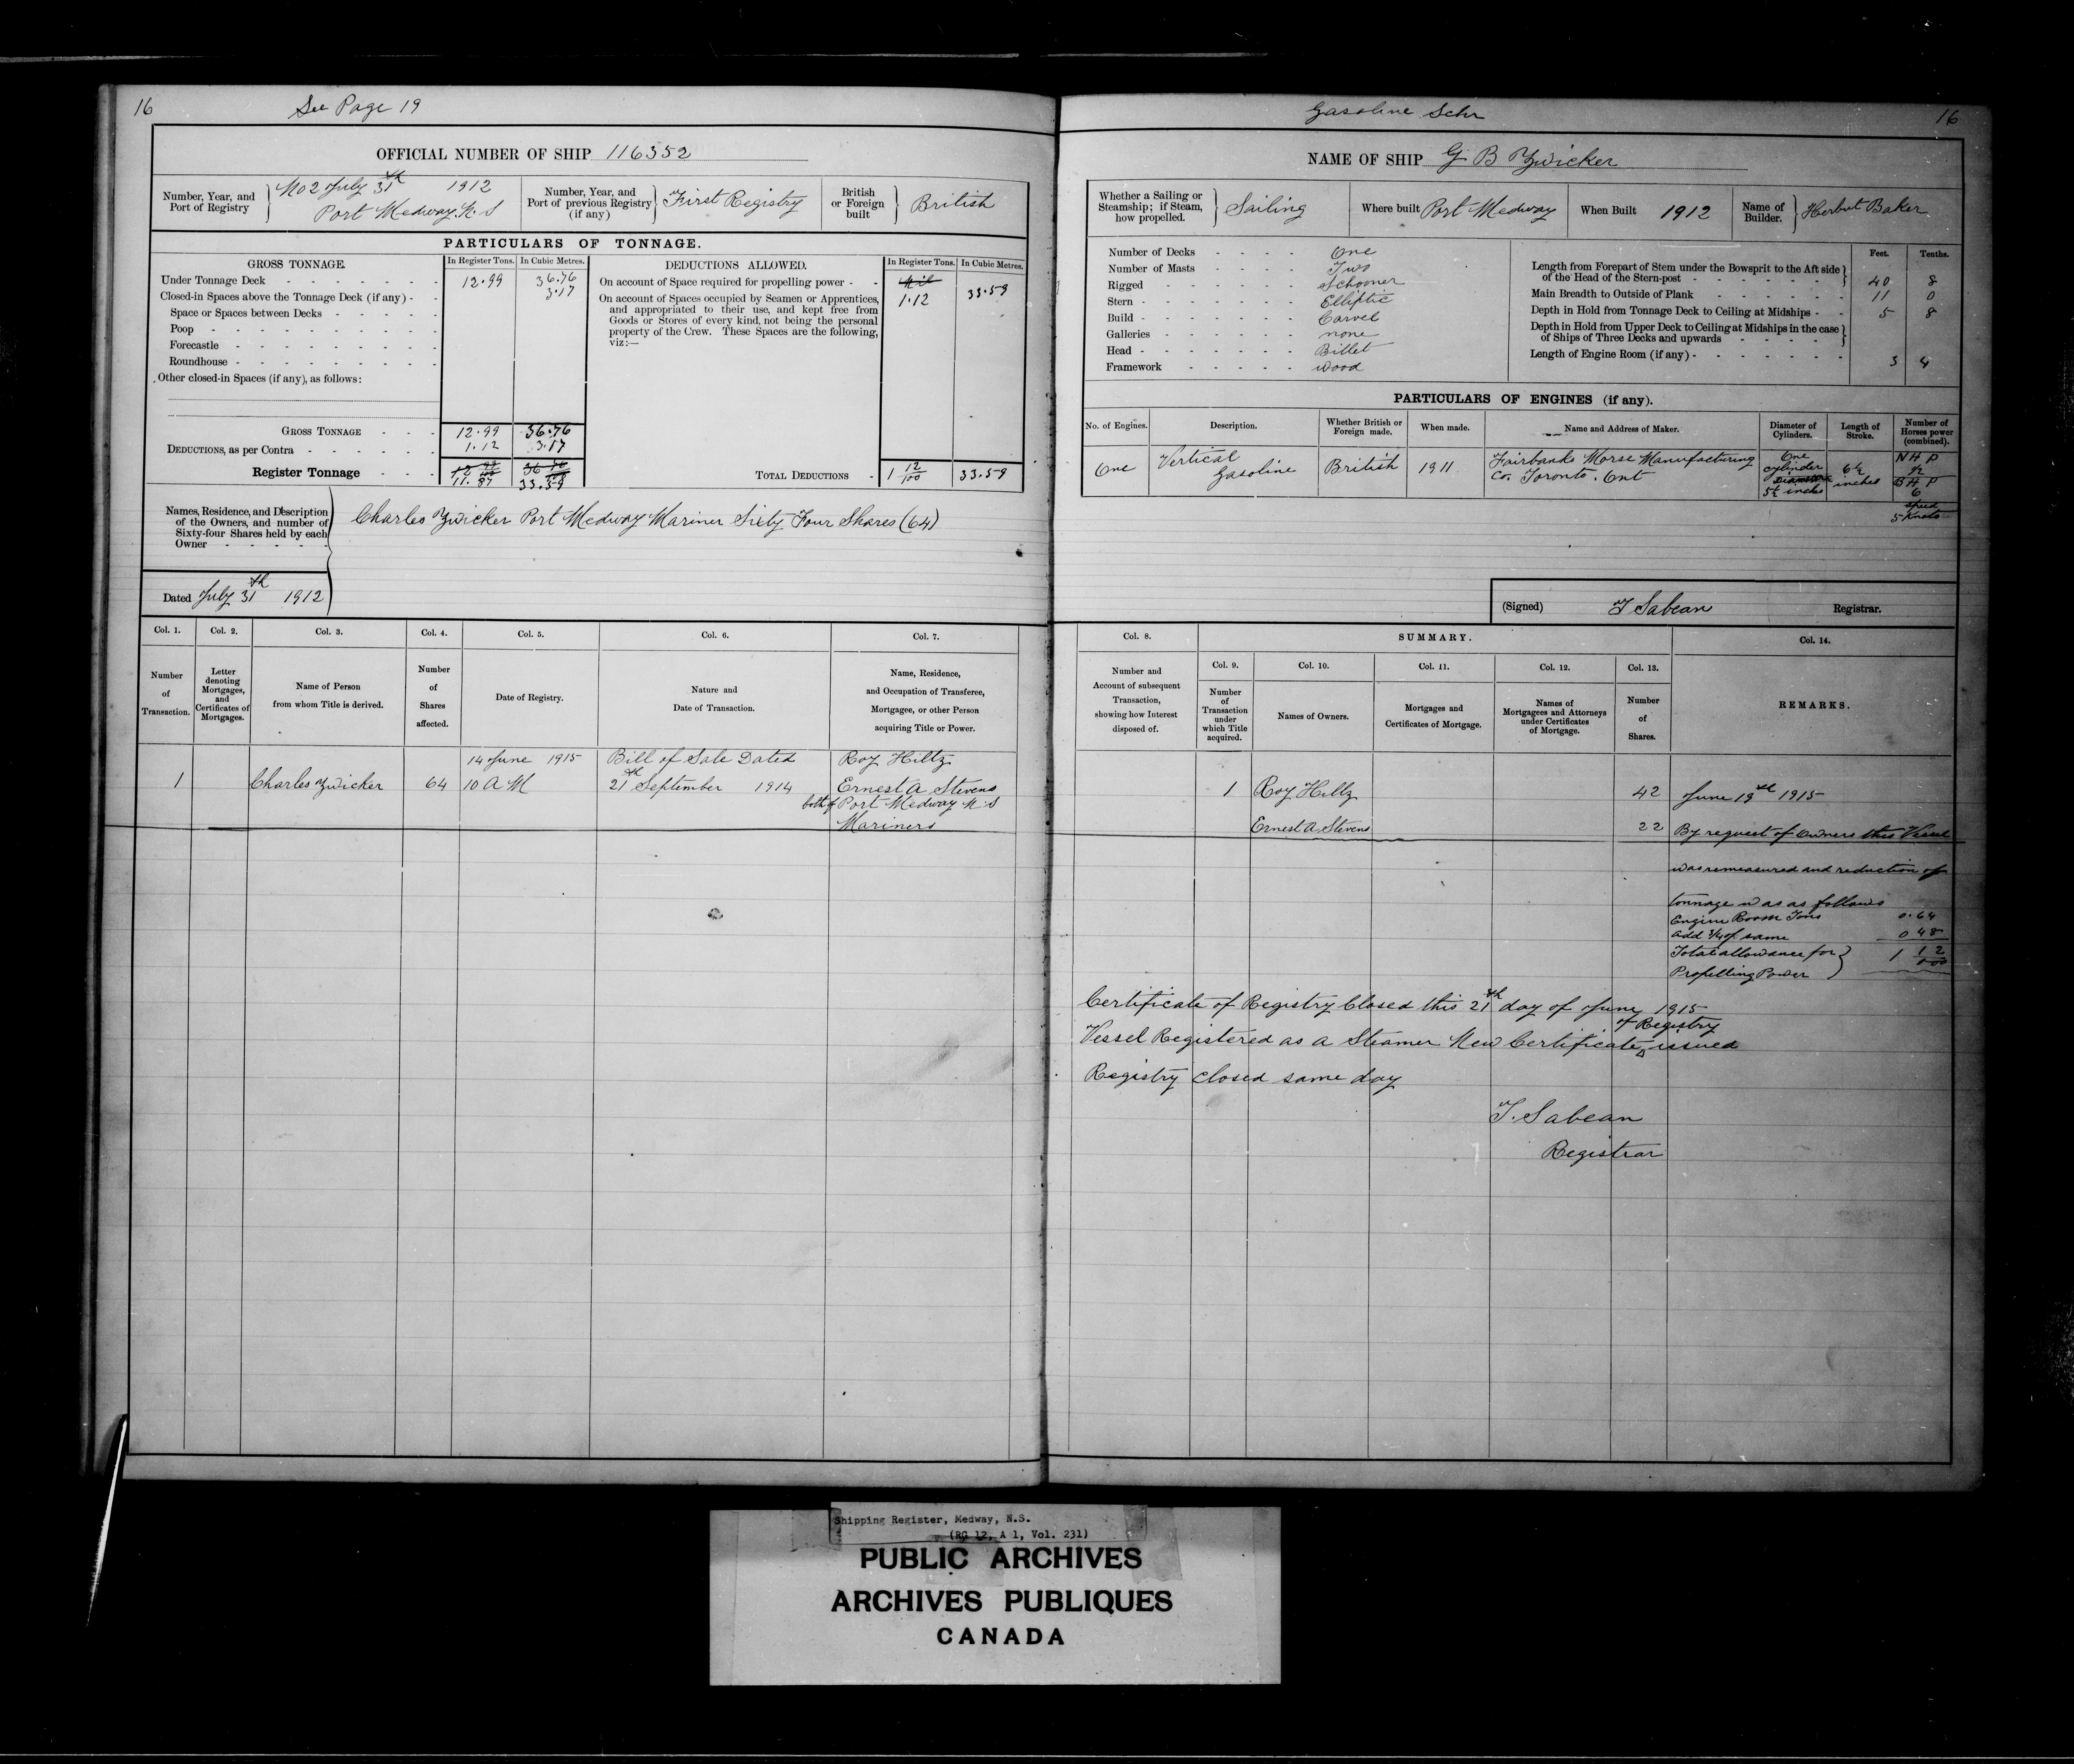 16
See Page 19
OFFICIAL NUMBER OF SHIP 116352
Number, Year, and Port of Registry
No 2 July 31th 1912
Port Medway N.S
Number, Year, and Port of previous Registry (if any)
First Registry
British or Foreign built
British
PARTICULARS OF TONNAGE.
GROSS TONNAGE.
In Register Tons.
In Cubic Metres.
Under Tonnage Deck 12.99 36.76
3.17
Closed-in Spaces above the Tonnage Deck (if any)
Space or Spaces between Decks
Poop
Forecastle
Roundhouse
Other closed-in Spaces (if any), as follows:
GROSS TONNAGE 12.99 36.76
DEDUCTIONS, as per Contra 1.12 3.17
Register Tonnage 12 99/100 36 76/100
11.87 33.59
DEDUCTIONS ALLOWED.
In Register Tons.
In Cubic Metres.
On account of Space required for propelling power Nil
1.12 33.59
On account of Spaces occupied by Seamen or Apprentices,
and appropriated to their use, and kept free from
Goods or Stores of every kind, not being the personal
property of the Crew. These Spaces are the following,
viz:—
TOTAL DEDUCTIONS 1 12/100 33.59
Names, Residence, and Description
of the Owners, and number of
Sixty-four Shares held by each
Owner
Charles Zwicker Port Medway Mariner Sixty Four Shares (64)
Dated July 31th 1912
Col. 1. Col. 2. Col. 3. Col. 4. Col. 5. Col. 6. Col. 7.
Number of Transaction.
Letter denoting Mortgages, and Certificates of Mortgages.
Name of Person from whom Title is derived.
Number of Shares affected.
Date of Registry.
Nature and Date of Transaction.
Name, Residence, and Occupation of Transferee, Mortgagee, or other Person acquiring Title or Power.
14 June 1915 Bill of Sale Dated Roy Hiltz
1 Charles Zwicker 64 10 A M 21th September 1914 Ernest A Stevens
both of Port Medway N.S
Mariners
Gasoline Schr
16
NAME OF SHIP G B Zwicker
Whether a Sailing or Steamship; if Steam, how propelled.
Sailing
Where built Port Medway
When Built 1912
Name of Builder.
Herbut Baker
Number of Decks One
Number of Masts Two
Rigged Schooner
Stern Elliptic
Build Carvel
Galleries none
Head Billet
Framework wood
Feet. Tenths.
Length from Forepart of Stem under the Bowsprit to the Aft side
of the Head of the Stern-post 40 8
Main Breadth to Outside of Plank 11 0
Depth in Hold from Tonnage Deck to Ceiling at Midships 5 8
Depth in Hold from Upper Deck to Ceiling at Midships in the case
of Ships of Three Decks and upwards
Length of Engine Room (if any) 3 4
PARTICULARS OF ENGINES (if any).
No. of Engines.
Description.
Whether British or Foreign made.
When made.
Name and Address of Maker.
Diameter of Cylinders.
Length of Stroke.
Number of Horses power (combined).
One
Vertical Gasoline
British
1911
Fairbanks Morse Manufacturing
Co. Toronto. Ont
One
cylinder
Diameter
5½ inches
6½
inches
N H P
½
B H P
6
Speed
5 Knots
(Signed) T Sabean Registrar.
Col. 8.
SUMMARY.
Col. 14.
Col. 9. Col. 10. Col. 11. Col. 12. Col. 13.
Number and Account of subsequent Transaction, showing how Interest disposed of.
Number of Transaction under which Title acquired.
Names of Owners.
Mortgages and Certificates of Mortgage.
Names of Mortgagees and Attorneys under Certificates of Mortgage.
Number of Shares.
REMARKS.
1 Roy Hiltz 42 June 19th 1915
Ernest A Stevens 22 By request of Owners this Vessel
was remeasured and reduction of
tonnage was as follows
Engine Room Tons 0.64
Add ¾ of same 0 48
Total allowance for
Propelling Power 1 12/100
Certificate of Registry Closed this 21th day of June 1915
Vessel Registered as a Steamer New Certificate of Registry issued
Registry closed same day
T. Sabean
Registrar
Shipping Register, Medway, N.S.
(RG 12, A 1, Vol. 231)
PUBLIC ARCHIVES
ARCHIVES PUBLIQUES
CANADA